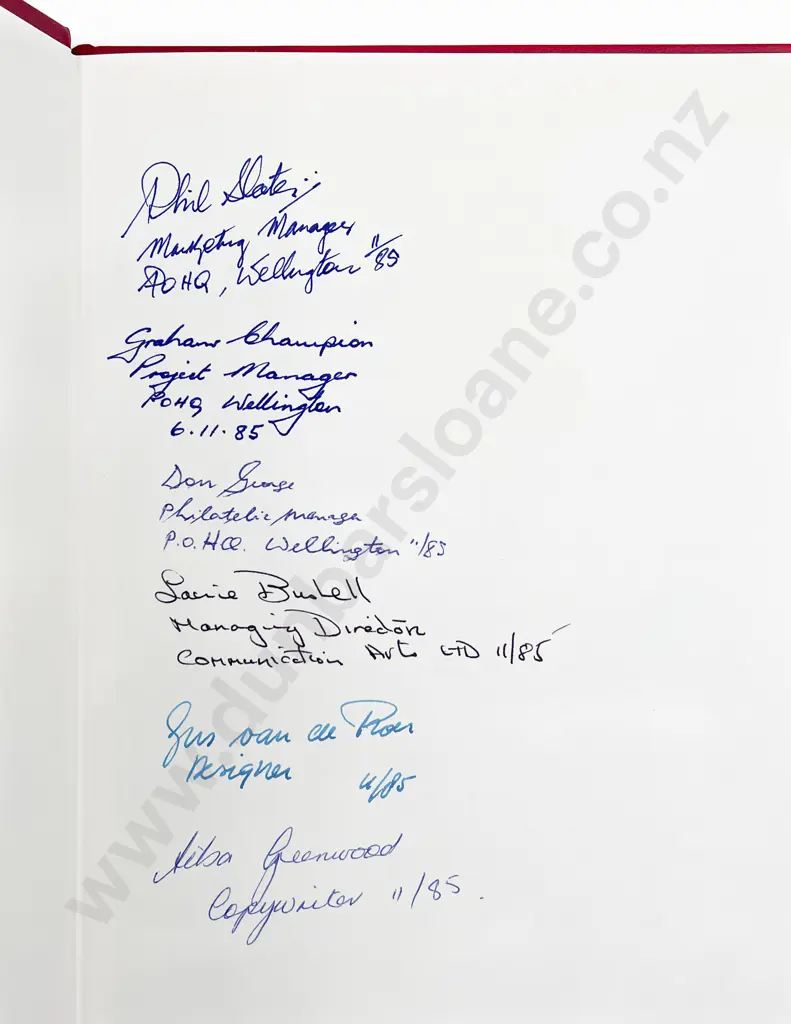 Phil Slater
Marketing Manager
POHQ, Wellington 11/85
Graham Champion
Project Manager
POHQ Wellington
6.11.85
Don George
Philatelic Manager
P.O.HQ. Wellington 11/85
Laurie Bushell
Managing Director
Communication Arts LTD 11/85
Gus van de Roer
Designer 11/85
Ailsa Greenwood
Copywriter 11/85.
www.dunbarsloane.co.nz